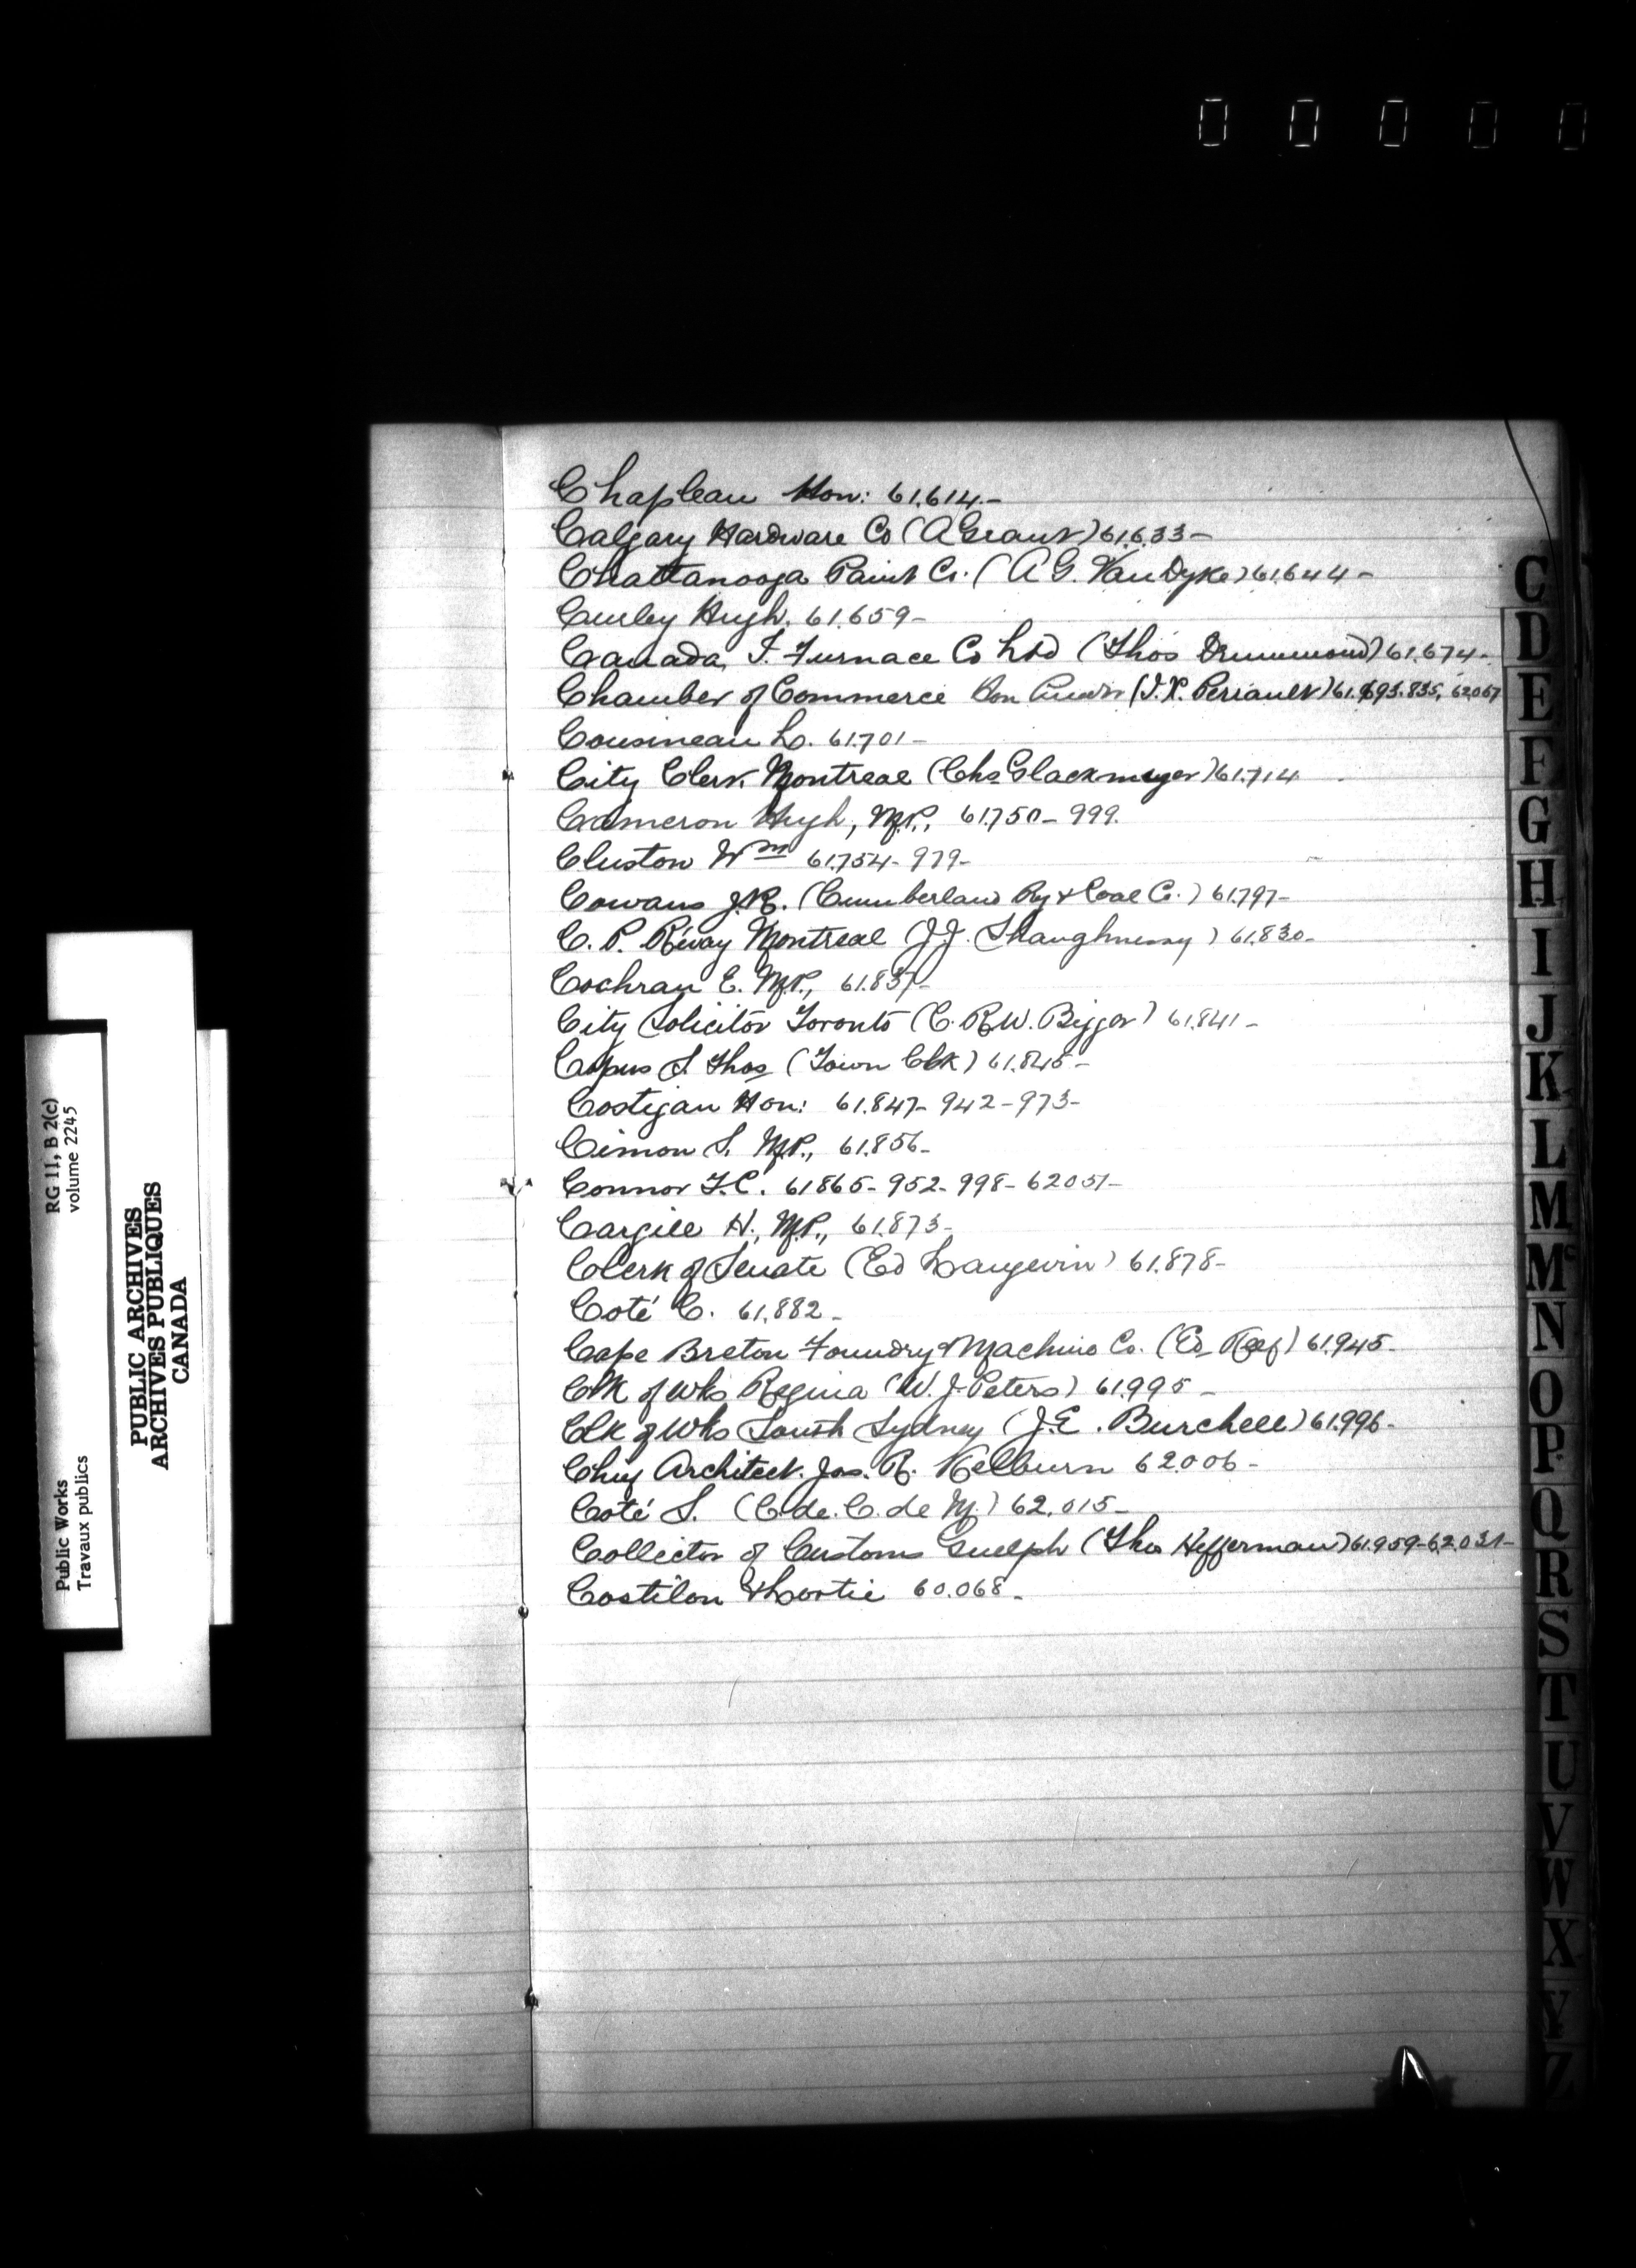 0 0 0 0 0
Chapleau Hon: 61.614-
Calgary Hardware Co (A Grant) 61.633-
Chattanooga Paint Co. (A G. Van Dyke) 61.644-
Curley Hugh. 61.659-
Canada, I. Furnace Co Ltd (Thos Drummond) 61.674-
Chamber of Commerce (J.X. Perrault) 61.693.835, 62057
Cousineau L. 61.701-
City Clerk Montreal (Chs Glackmeyer) 61.714
Cameron Hugh, M.P., 61.750-999.
Cluston Wm 61.754-979-
Cowans J.R. (Cumberland Ry & Coal Co.) 61.797-
C. P. R'way Montreal (J.J. Shaughnessy) 61.830-
Cochran E. M.P., 61.837-
City Solicitor Toronto (C.R.W. Bigger) 61.841-
Copus S. Thos (Town Clk) 61.845-
Costigan Hon: 61.847-942-973-
Cimon S. M.P., 61.856-
Connor F.C. 61865-952-998-62051-
Cargill H., M.P., 61.873-
Clerk of Senate (Ed Langevin) 61.878-
Coté C. 61.882-
Cape Breton Foundry & Machine Co. (Ed) 61.945-
Clk of Wks Regina (W. J. Peters) 61.995-
Clk of Wks South Sydney (J.E. Burchell) 61.996-
Chief Architect. Jas. R. Kelburn 62.006-
Coté S. (C. de. C. de M.) 62.015-
Collector of Customs Guelph (Thos Hefferman) 61.959-62.031-
Costilon & Lortie 60.068-
C
D
E
F
G
H
I
J
K
L
M
Mc
N
O
P
Q
R
S
T
U
V
W
X
Y
Z
RG 11, B 2(c)
volume 2245
Public Works
Travaux publics
PUBLIC ARCHIVES
ARCHIVES PUBLIQUES
CANADA